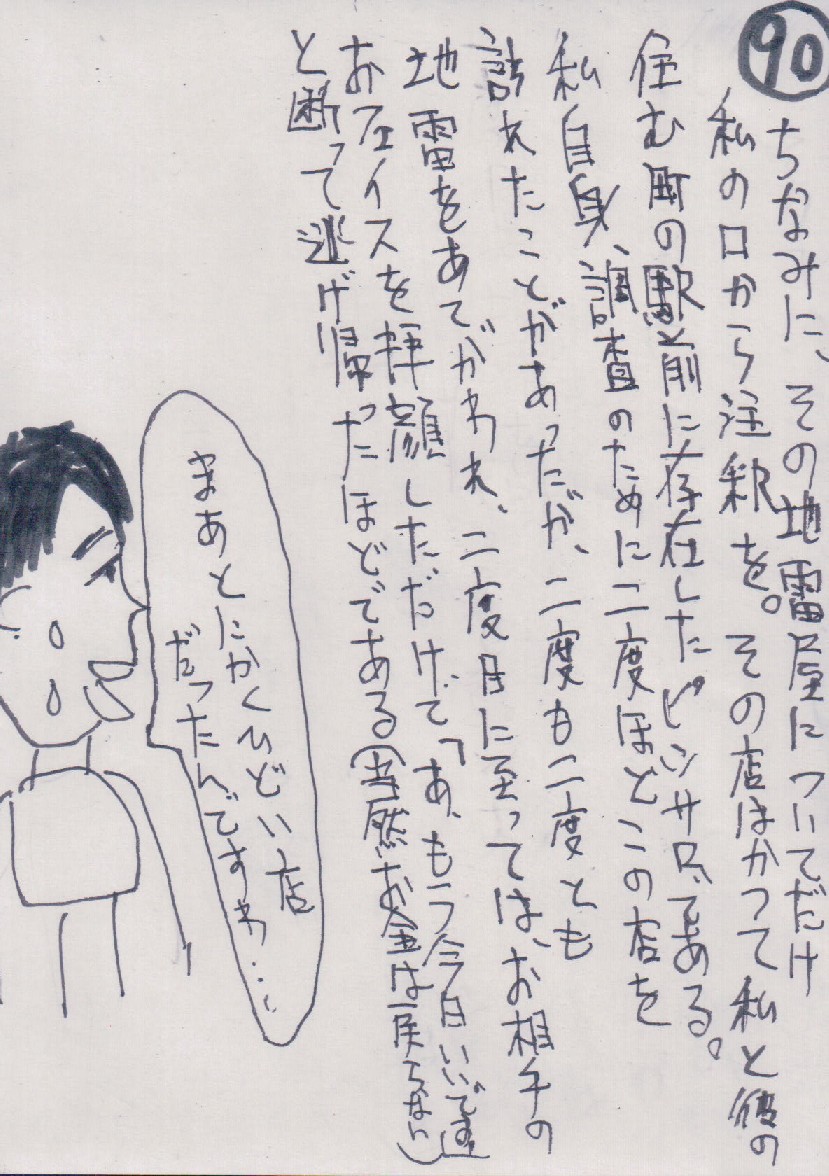 90
ちなみに、その地雷屋についてだけ
私の口から注釈を。その店はかつて私と彼の
住む町の駅前に存在したピンサロである。
私自身、調査のために二度ほどこの店を
訪れたことがあっただが、二度も二度とも
地雷をあてがわれ、二度目に至っては、お相手の
おフェイスを拝顔しただけで「あ、もう今日いいです」
と断って逃げ帰ったほどである(当然お金は戻らない)
まあとにかくひどい店
だったんですわ…